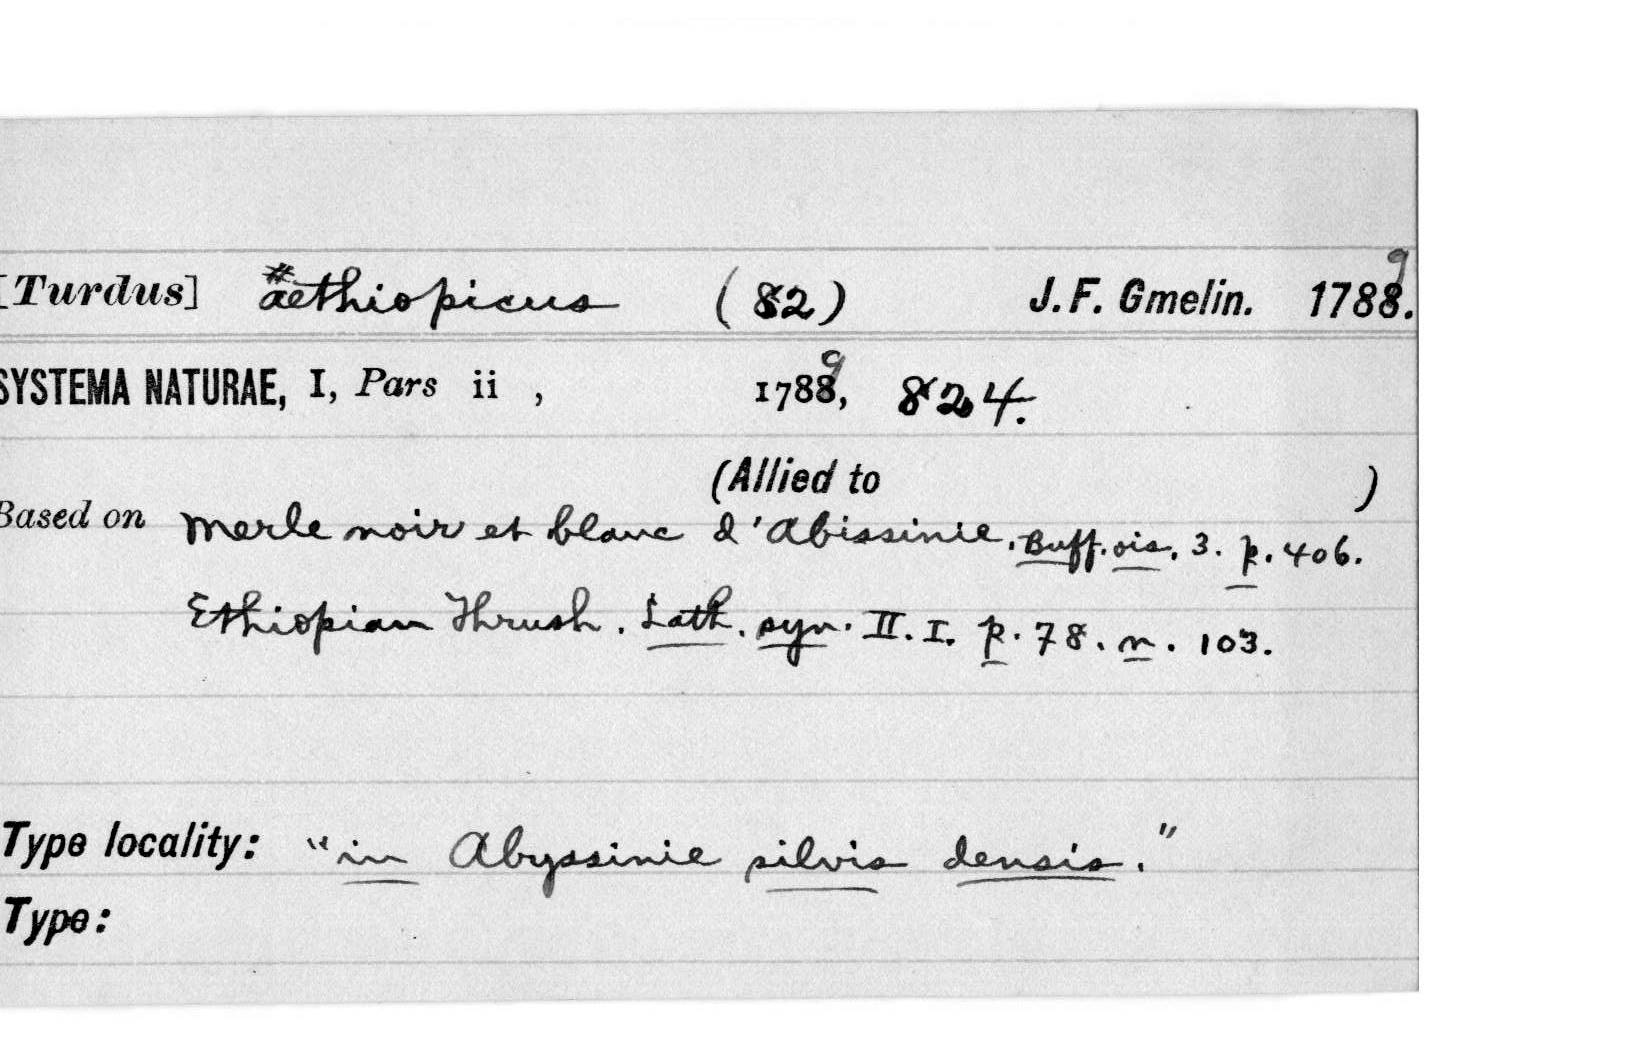 [Turdus] #aethiopicus (82) J. F. Gmelin. 17889.
SYSTEMA NATURAE, I, Pars ii , 17889, 824.
(Allied to )
Based on Merle noir et blanc d'Abissinie. Buff. ois. 3. p. 406.
Ethiopian Thrush. Lath. syn. II. I. p. 78. n. 103.
Type locality: "in Abyssinie silvis densis."
Type: